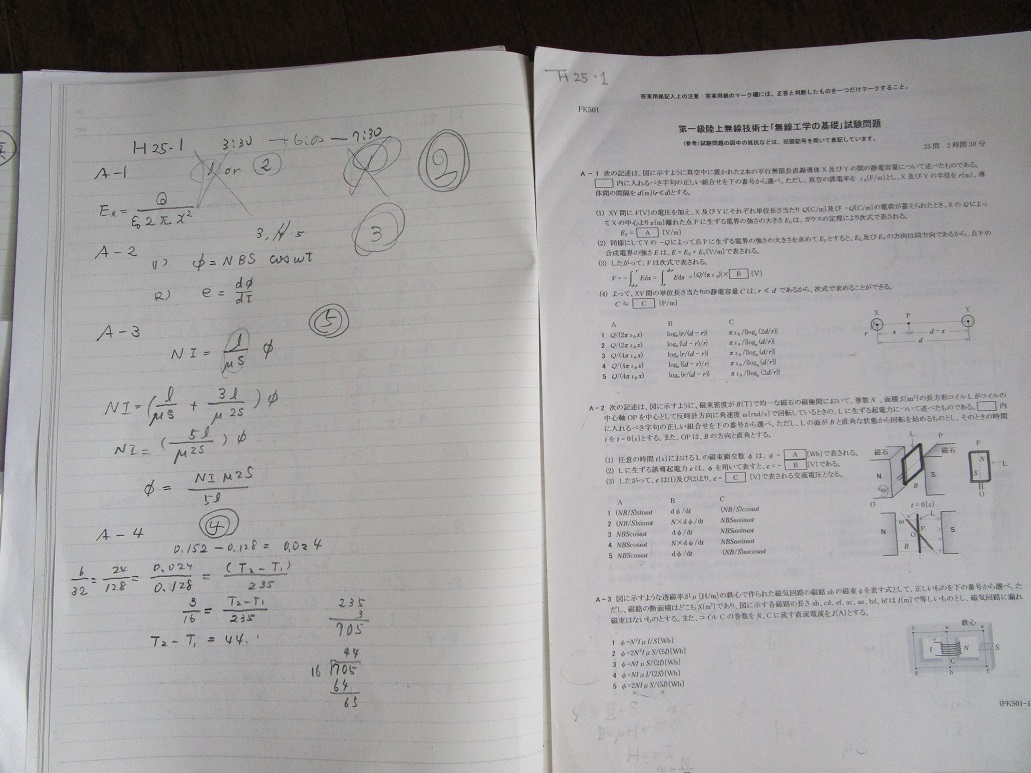 H25.1 3:30 7:30
A-1 1 or 2 ②
Ex = Q / ε₀ 2π x²
3, 4, 5 ③
A-2 1) φ = NBS cosωt
2) e = dφ/dt
A-3 ⑤
NI = l/μS φ
NI = (l/μS + 3l/μ2S) φ
NI = (5l/μ2S) φ
φ = NIμ2S / 5l
A-4 ④
0.152 − 0.128 = 0.024
6/32 = 24/128 = 0.024/0.128 = (T₂−T₁)/235
3/16 = T₂−T₁/235
T₂−T₁ = 44.
235
3
705
44
16 705
64
65
H25.1
答案用紙記入上の注意 答案用紙のマーク欄には、正答と判断したものを一つだけマークすること。
FK501
第一級陸上無線技術士「無線工学の基礎」試験問題
(参考)試験問題の図中の抵抗などは、旧図記号を用いて表記しています。
25問 2時間30分
A-1 次の記述は、図に示すように真空中に置かれた2本の平行無限長直線導体X及びYの間の静電容量について述べたものである。
内に入れるべき字句の正しい組合せを下の番号から選べ。ただし、真空の誘電率をε₀[F/m]とし、X及びYの半径をr[m]、導
体間の間隔をd[m](r≪d)とする。
(1) XY間にV[V]の電圧を加え、X及びYにそれぞれ単位長さ当たりQ[C/m]及び−Q[C/m]の電荷が蓄えられたとき、XのQによっ
てXの中心よりx[m]離れた点Pに生ずる電界の強さの大きさEₓは、ガウスの定理により次式で表される。
Eₓ= A [V/m]
(2) 同様にしてYの−Qによって点Pに生ずる電界の強さの大きさを求めてEᵧとすると、Eₓ及びEᵧの方向は同方向であるから、点Pの
合成電界の強さEは、E=Eₓ+Eᵧ[V/m]で表される。
(3) したがって、Vは次式で表される。
B [V]
(4) よって、XY間の単位長さ当たりの静電容量Cは、r≪dであるから、次式で求めることができる。
C≒ C [F/m]
A B C
1 Q/(2πε₀x) logₑ{r/(d−r)} πε₀/{logₑ(2d/r)}
2 Q/(2πε₀x) logₑ{(d−r)/r} πε₀/{logₑ(d/r)}
3 Q/(4πε₀x) logₑ{r/(d−r)} πε₀/{logₑ(d/r)}
4 Q/(4πε₀x) logₑ{(d−r)/r} πε₀/{logₑ(d/r)}
5 Q/(4πε₀x) logₑ{r/(d−r)} πε₀/{logₑ(2d/r)}
X P Y
r x d−x
d
A-2 次の記述は、図に示すように、磁束密度がB[T]で均一な磁石の磁極間において、巻数N、面積S[m²]の長方形コイルLがコイルの
中心軸OPを中心として反時計方向に角速度ω[rad/s]で回転しているときの、Lに生ずる起電力について述べたものである。 内
に入れるべき字句の正しい組合せを下の番号から選べ。ただし、Lの面がBと直角な状態から回転を始めるものとし、そのときの時間
tをt=0[s]とする。また、OPは、Bの方向と直角とする。
(1) 任意の時間t[s]におけるLの磁束鎖交数φは、φ= A [Wb]で表される。
(2) Lに生ずる誘導起電力eは、φを用いて表すと、e=− B [V]である。
(3) したがって、eは(1)及び(2)より、e= C [V]で表される交流電圧となる。
A B C
1 (NB/S)sinωt dφ/dt (NB/S)cosωt
2 (NB/S)sinωt N×dφ/dt NBSωsinωt
3 NBScosωt dφ/dt NBSωsinωt
4 NBScosωt N×dφ/dt NBSωsinωt
5 NBScosωt dφ/dt (NB/S)ωcosωt
磁石 L P 磁石 P
N S N S L
B O O
t=0[s]
N L P S
B O
A-3 図に示すような透磁率がμ[H/m]の鉄心で作られた磁気回路の磁路abの磁束φを表す式として、正しいものを下の番号から選べ。た
だし、磁路の断面積はどこもS[m²]であり、図に示す各磁路の長さab、cd、ef、ac、ae、bd、bfはl[m]で等しいものとし、磁気回路に漏れ
磁束はないものとする。また、コイルCの巻数をN、Cに流す直流電流をI[A]とする。
1 φ=N²Iμl/S[Wb]
2 φ=2N²IμS/(5l)[Wb]
3 φ=NIμS/(2l)[Wb]
4 φ=NIμl/(2S)[Wb]
5 φ=2NIμS/(5l)[Wb]
鉄心
I N S
C
(FK501-1